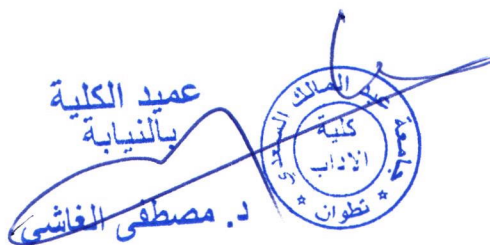 عميد الكلية
بالنيابة
د. مصطفى الغاشي
جامعة عبد المالك السعدي
كلية
الاداب
* تطوان *